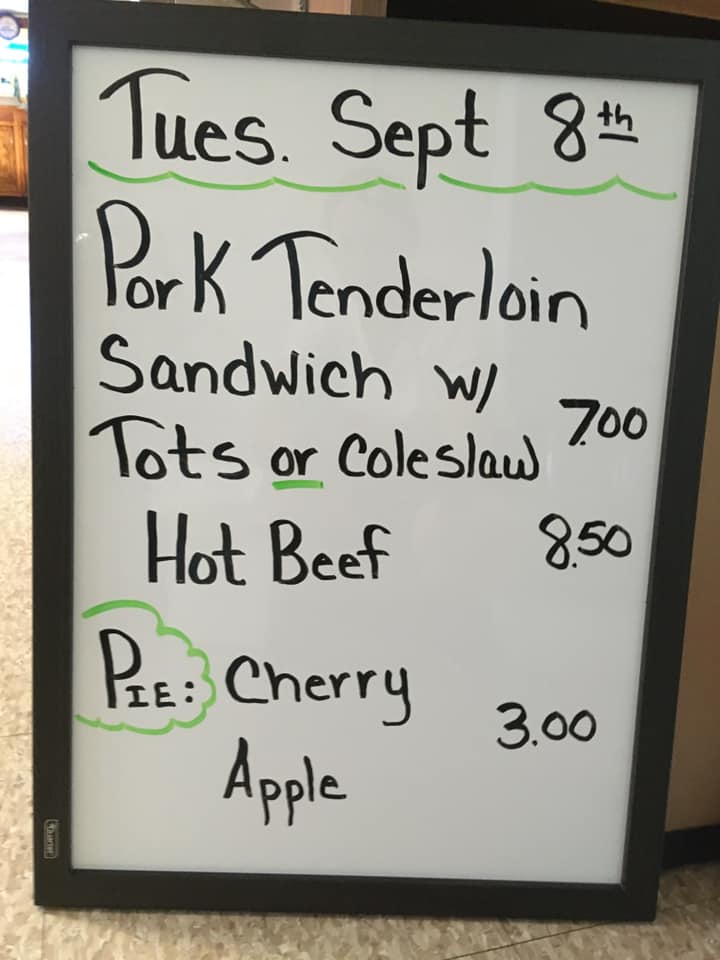 Tues. Sept 8th
Pork Tenderloin
Sandwich w/
Tots or Coleslaw 7.00
Hot Beef 8.50
PIE: Cherry
3.00
Apple
Quartet